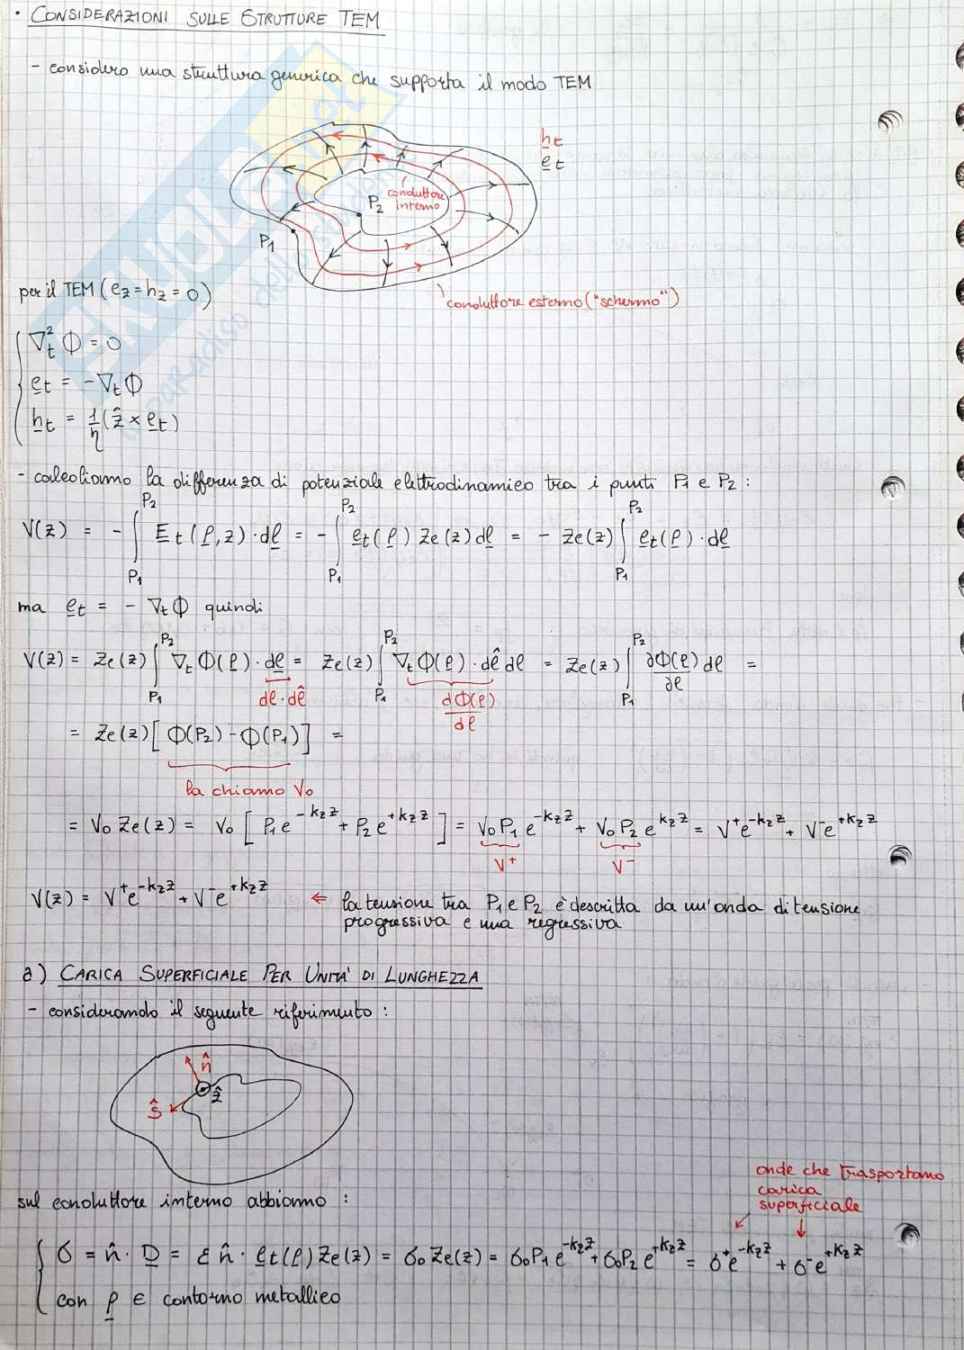 • CONSIDERAZIONI SULLE STRUTTURE TEM
- considero una struttura generica che supporta il modo TEM
h̲t
e̲t
conduttore interno
P₂
P₁
conduttore esterno ("schermo")
per il TEM (e_z = h_z = 0)
∇t² Φ = 0
e̲t = -∇t Φ
h̲t = 1/η (ẑ × e̲t)
- calcoliamo la differenza di potenziale elettrodinamico tra i punti P₁ e P₂ :
V(z) = - ∫_{P₁}^{P₂} E̲t(ρ̲,z)·dl̲ = - ∫_{P₁}^{P₂} e̲t(ρ̲) Ze(z) dl̲ = - Ze(z) ∫_{P₁}^{P₂} e̲t(ρ̲)·dl̲
ma e̲t = - ∇t Φ quindi
V(z) = Ze(z) ∫_{P₁}^{P₂} ∇t Φ(ρ̲)·dl̲ = Ze(z) ∫_{P₁}^{P₂} ∇t Φ(ρ̲)·dl̂ dl = Ze(z) ∫_{P₁}^{P₂} ∂Φ(ρ̲)/∂l dl =
dl·dl̂
∂Φ(ρ̲)/∂l
= Ze(z) [ Φ(P₂) - Φ(P₁) ] =
la chiamo V₀
= V₀ Ze(z) = V₀ [ P₁e^{-k_z z} + P₂e^{+k_z z} ] = V₀P₁ e^{-k_z z} + V₀P₂ e^{k_z z} = V⁺e^{-k_z z} + V⁻e^{+k_z z}
V⁺ V⁻
V(z) = V⁺e^{-k_z z} + V⁻e^{+k_z z} ⇐ la tensione tra P₁ e P₂ è descritta da un'onda di tensione
progressiva e una regressiva
a) CARICA SUPERFICIALE PER UNITA' DI LUNGHEZZA
- considerando il seguente riferimento :
n̂
ẑ
ŝ
onde che trasportano
carica
superficiale
sul conduttore interno abbiamo :
σ = n̂·D̲ = ε n̂·e̲t(ρ̲) Ze(z) = σ₀ Ze(z) = σ₀P₁e^{-k_z z} + σ₀P₂e^{+k_z z} = σ⁺e^{-k_z z} + σ⁻e^{+k_z z}
con ρ̲ ∈ contorno metallico